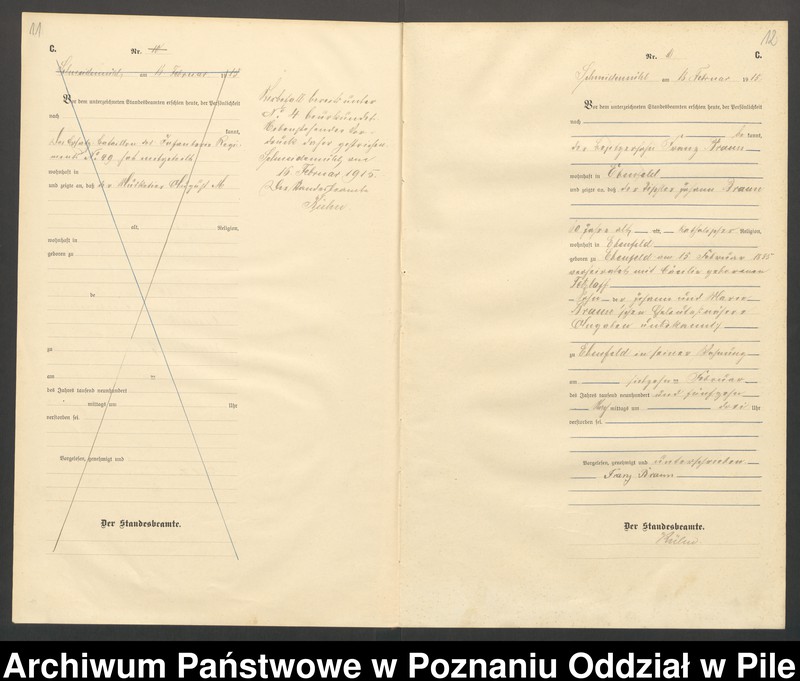 11
C.
Nr. 11
Schneidemühl, am Februar
Vor dem unterzeichneten Standesbeamten erschien heute, der Persönlichkeit
nach
kannt,
Infanterie Regi-
ments No. hat mitgeteilt
wohnhaft in
und zeigte an, daß der Musketier August
alt, Religion,
wohnhaft in
geboren zu
de
zu
am te
des Jahres tausend neunhundert
mittags um Uhr
verstorben sei.
Vorgelesen, genehmigt und
Der Standesbeamte.
Sterbefall bereits unter
No. 4 beurkundet.
Nebenstehender Vor-
druck daher gestrichen.
Schneidemühl, am
16 Februar 1915.
Der Standesbeamte
12
Nr. 6 C.
Schneidemühl am Februar
Vor dem unterzeichneten Standesbeamten erschien heute, der Persönlichkeit
nach
be kannt,
der Besitzersohn Franz Braun
wohnhaft in Ebenfeld
und zeigte an, daß der Johann Braun
Jahre alt, alt, katholischer Religion,
wohnhaft in Ebenfeld
geboren zu Ebenfeld am 15 Februar
verheiratet mit Cäcilie geborenen
Sohn der Johann und Marie
Braun'schen Eheleute, nähere
Angaben unbekannt,
zu Ebenfeld in seiner Wohnung
am Februar
des Jahres tausend neunhundert und fünfzehn
Nach mittags um drei Uhr
verstorben sei.
Vorgelesen, genehmigt und unterschrieben
Franz Braun
Der Standesbeamte.
Archiwum Państwowe w Poznaniu Oddział w Pile